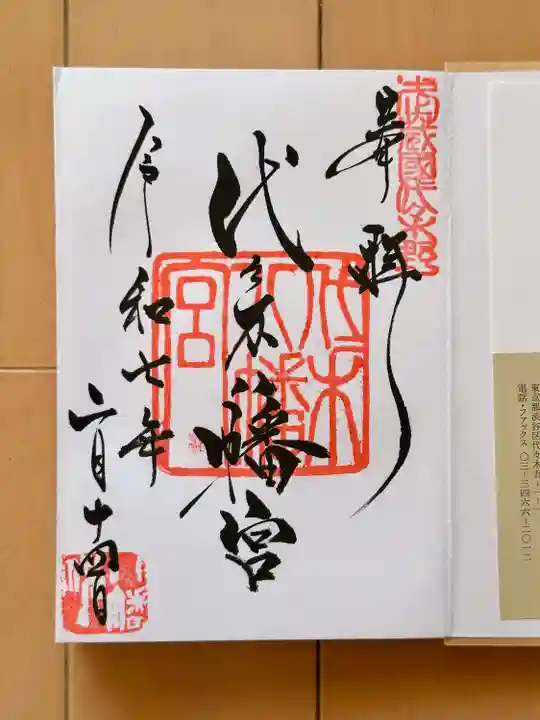 奉拝
武蔵國代々木野
代々木八幡宮
令和七年
六月十四日
東京都渋谷区代々木五-一-一
電話・ファックス 〇三-三四六六-二〇一二